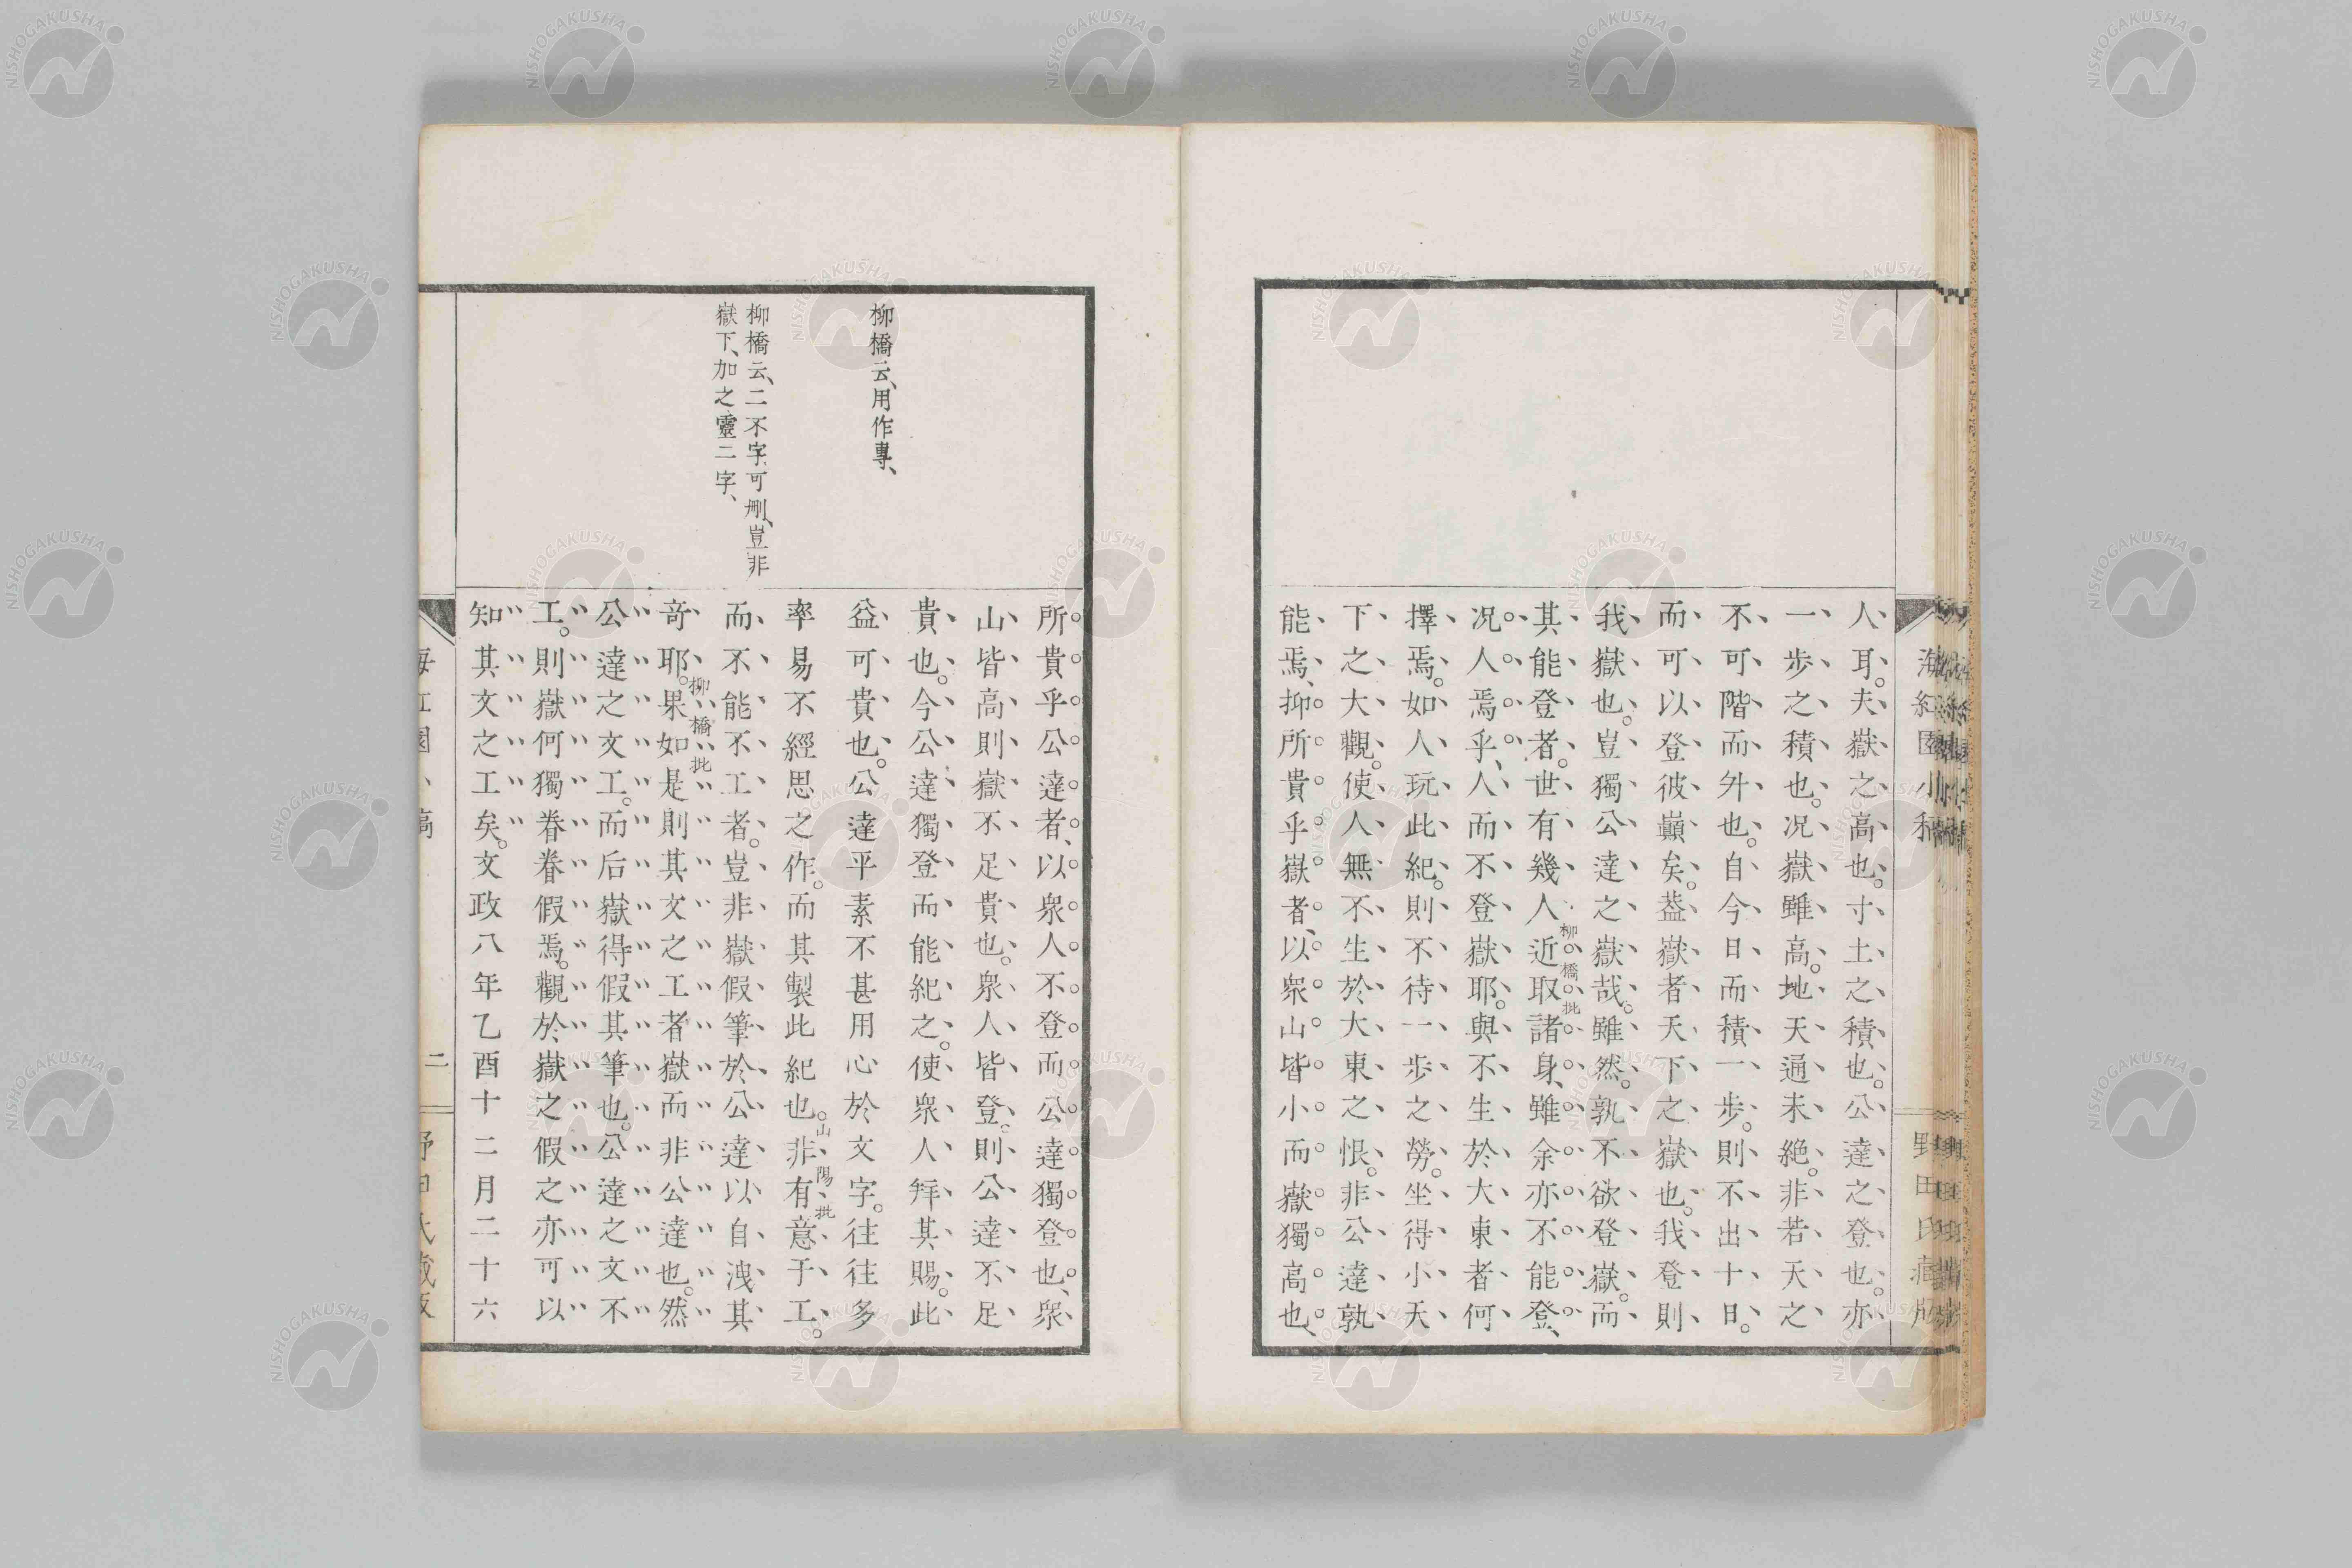 人耳。夫嶽之高也。寸土之積也。公達之登也。亦
一步之積也。况嶽雖高。地天通未絶。非若天之
不可階而升也。自今日而積一步。則不出十日。
而可以登彼巓矣。蓋嶽者天下之嶽也。我登則
我嶽也。豈獨公達之嶽哉。雖然。孰不欲登嶽。而
其能登者。世有幾人。近取諸身、雖余亦不能登、
柳橋批
况人焉乎、人而不登嶽耶。與不生於大東者何
擇焉。如人玩此紀。則不待一步之勞。坐得小天
下之大觀。使人無不生於大東之恨。非公達孰
能焉、抑所貴乎嶽者、以衆山皆小而嶽獨高也、
海紅園小稿
野田氏藏版
所貴乎公達者、以衆人不登而公達獨登也、衆
山皆高則嶽不足貴也。衆人皆登。則公達不足
貴也。今公達獨登而能紀之。使衆人拜其賜。此
益可貴也。公達平素不甚用心於文字。往往多
率易不經思之作。而其製此紀也。非有意于工。
山陽批
而不能不工者。豈非嶽假筆於公達以自洩其
奇耶。果如是則其文之工者嶽而非公達也。然
柳橋批
公達之文工。而后嶽得假其筆也。公達之文不
工。則嶽何獨眷眷假焉。觀於嶽之假之亦可以
知其文之工矣。文政八年乙酉十二月二十六
柳橋云、用作專、
柳橋云、二不字可刪、豈非
嶽下、加之靈二字、
二